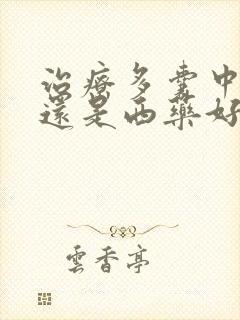 治療多囊中
還是西藥好
雲香亭